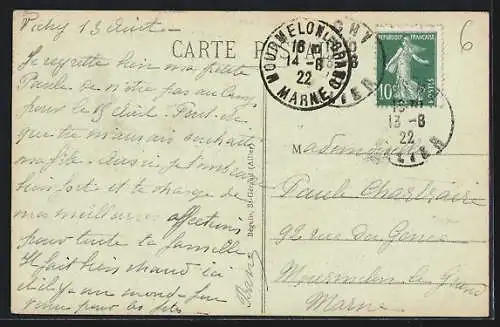 Vichy 13 Août
Je regrette bien ma petite
Paule de n'être pas au Camp
pour le 15 Août. Peut-
que tu m'aurais souhaité
ma fête. Aussi je t'embrasse
bien fort et te charge de
mes meilleures affections
pour toute ta famille
Il fait bien chaud ici
et il y a un monde fou
venu pour les fêtes
CARTE POSTALE
Béguin, St-Gérand (Allier)
MOURMELON-LE-GRAND
16
14 - 8
22
MARNE
REPUBLIQUE FRANÇAISE
10
POSTES
13 - 8
22
ALLIER
6
Mademoiselle
Paule
92 rue du Génie
Mourmelon le Grand
Marne